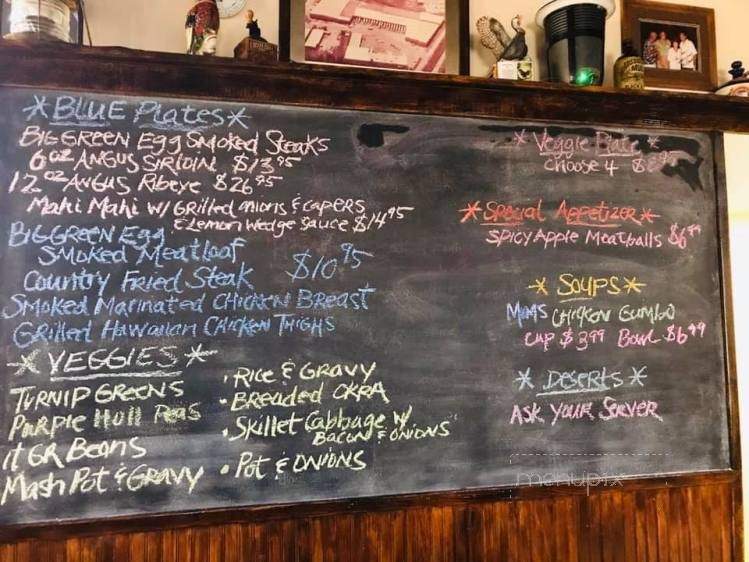 *BLUE Plates*
BIG GREEN Egg Smoked Steaks
6 oz ANGUS SIRIOIN $13.95
12 oz ANGUS Ribeye $26.95
Mahi Mahi W/ GRilled onions & CAPERS
& Lemon Wedge Sauce $14.95
BIG GREEN Egg
Smoked Meatloaf
Country Fried Steak $10.95
Smoked Marinated CHICKEN BREAST
GRilled Hawaiian CHICKEN THIGHS
*VEGGIES*
TURNIP GREENS
PURPLE Hull Peas
IT GR Beans
Mash Pot & GRAVY
• Rice & GRAVY
• BREADED OKRA
• Skillet Cabbage W/
BACON & ONIONS
• Pot & ONIONS
*Veggie Plate*
Choose 4 $8.95
*Special Appetizer*
SPICY Apple Meatballs $6.99
*SOUPS*
MIMS CHICKEN GUMBO
CUP $3.99 Bowl $6.99
*DESERTS*
ASK YOUR SERVER
menupix